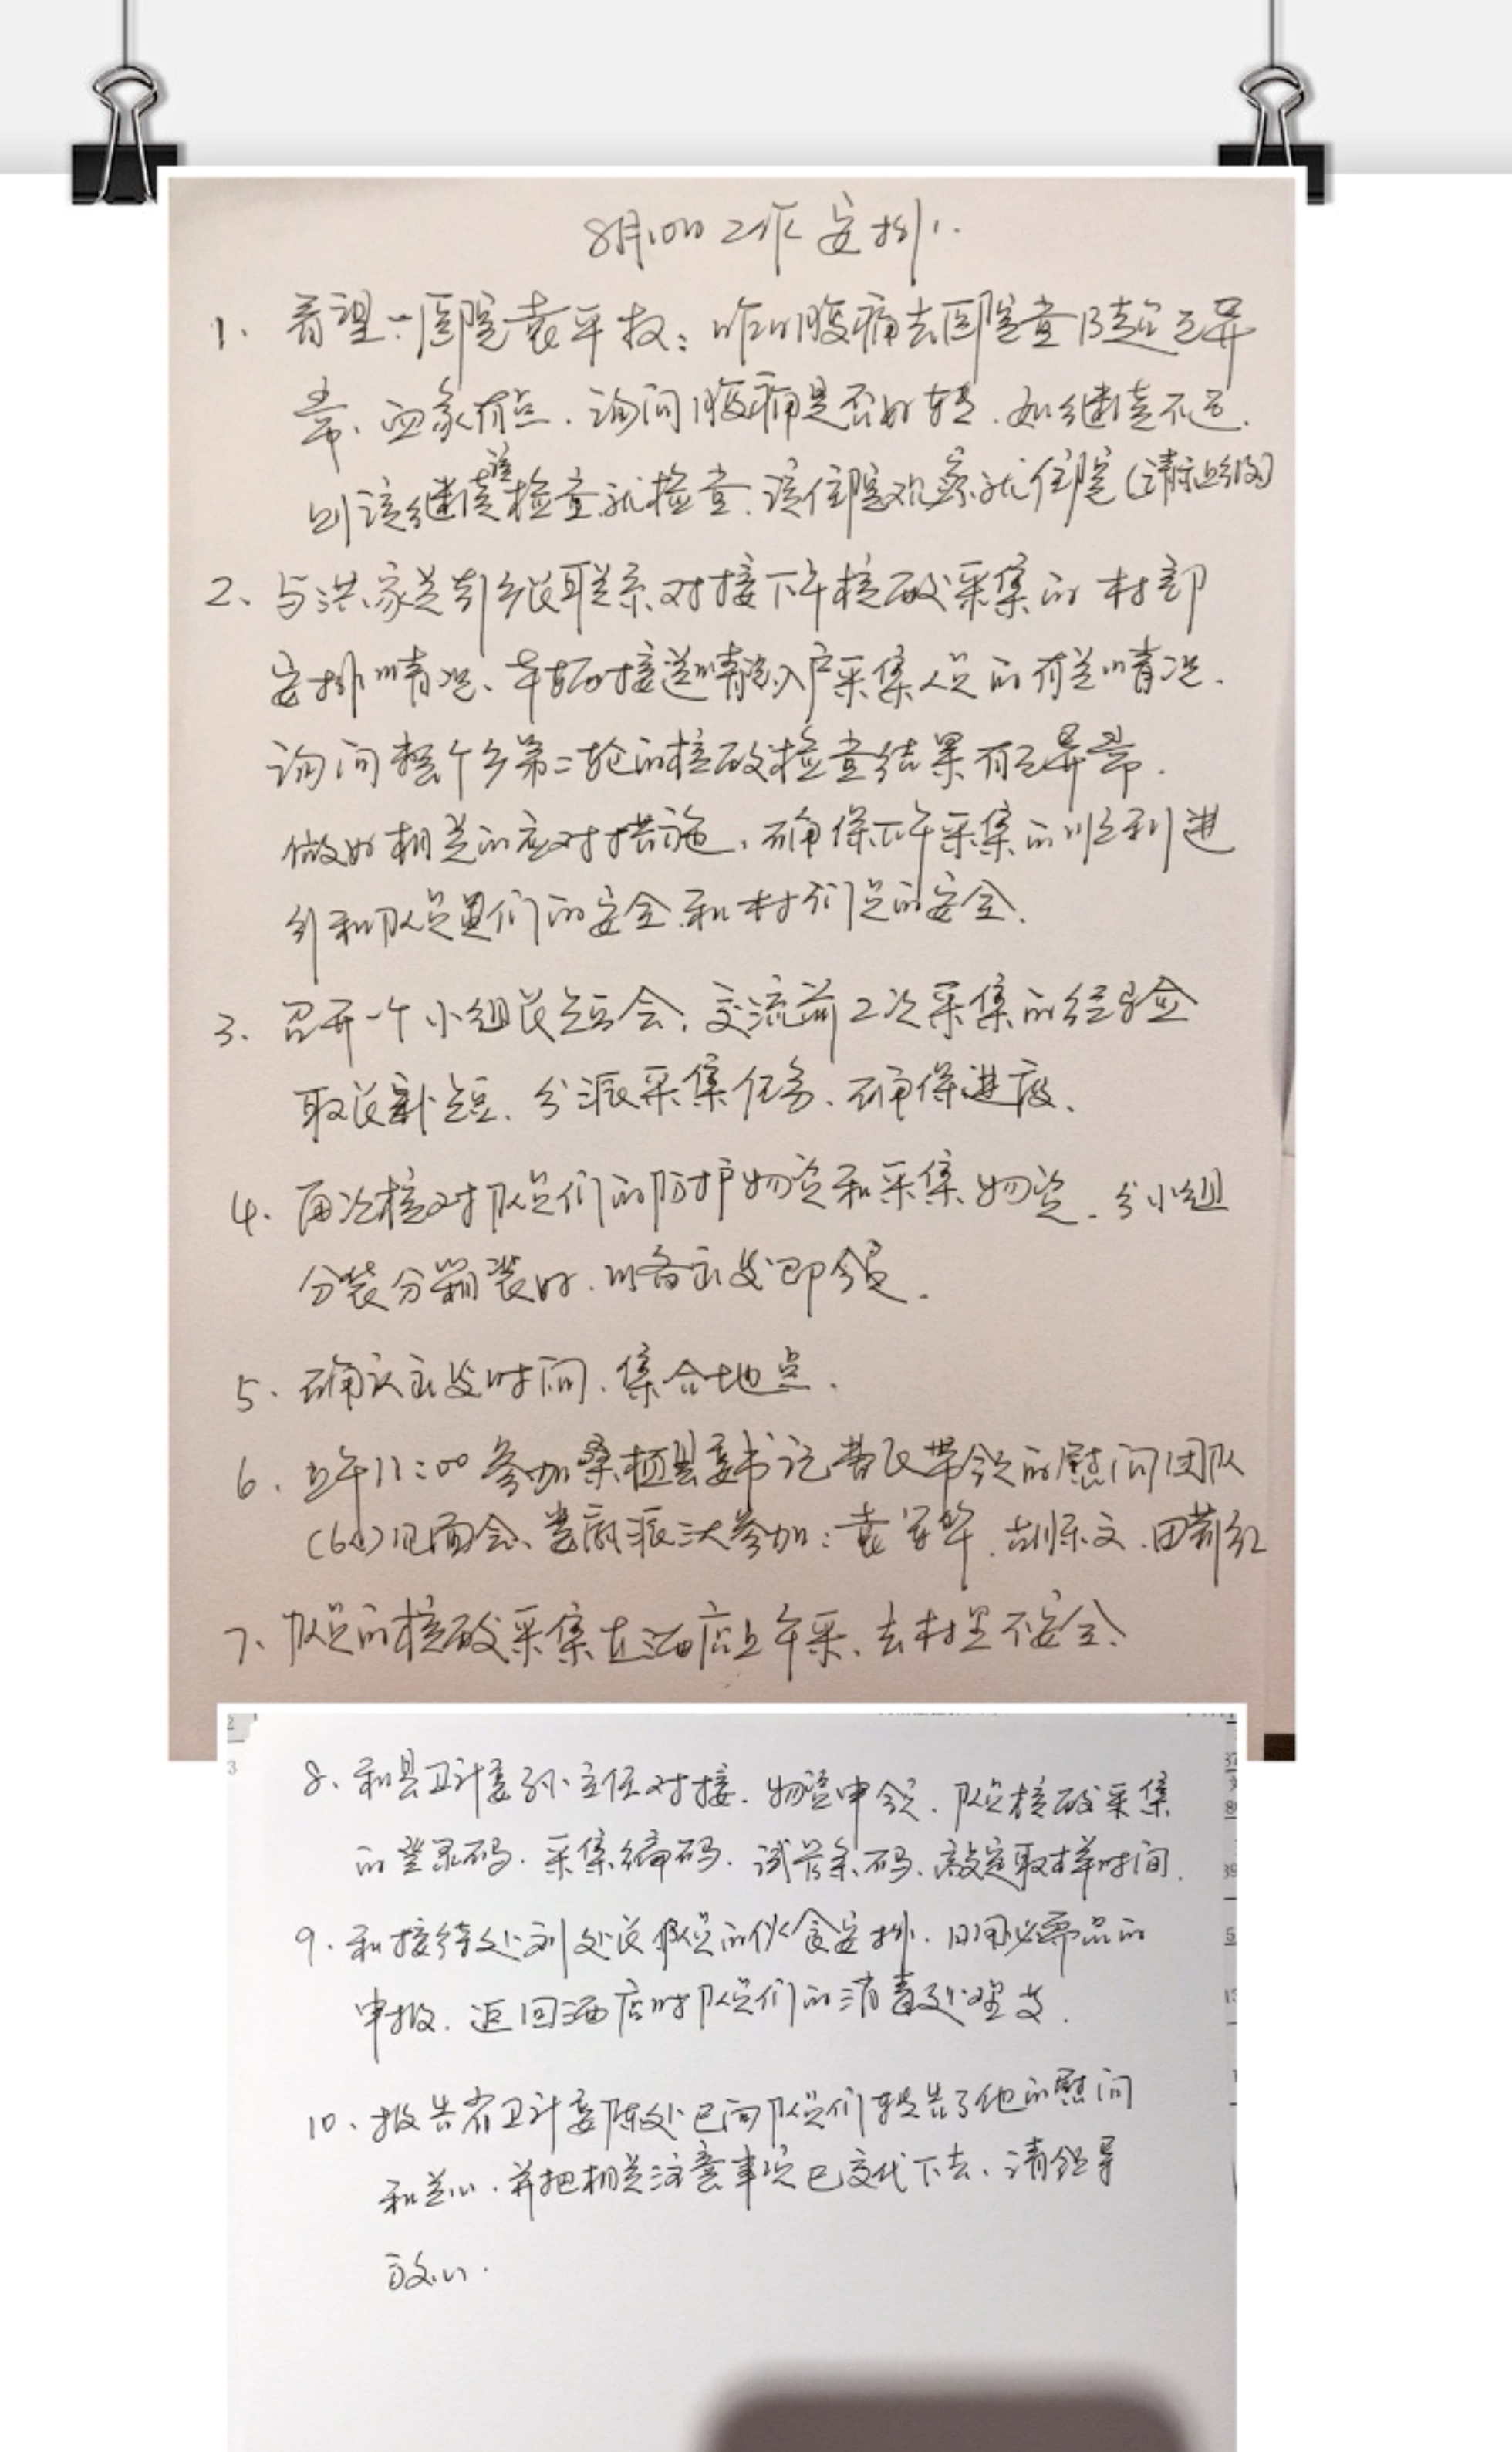 8月10日工作安排.
1、看望一医院袁平校:昨日腹痛去医院查B超无异
常、血象有点.询问腹痛是否好转.如继续不适.
则该继续检查就检查.该住院观察就住院(请示上级)
2、与洪家关乡长联系对接下午核酸采集的村部
安排情况、车辆接送情况入户采集人员的有关情况.
询问整个乡第二轮的核酸检查结果有无异常.
做好相关的应对措施、确保下午采集的顺利进
行和队员们的安全和村民的安全.
3、召开一个小组长短会、交流前2次采集的经验
取长补短、分派采集任务、确保进度、
4、再次核对队员们的防护物资和采集物资.分小组
分装分箱装好.以备出发即领.
5、确认出发时间、集合地点.
6、上午11:00参加桑植县委书记带领的慰问团队
(6人)见面会、党派三人参加:袁、胡、田莉红
7、队员的核酸采集在酒店上午采、去村里不安全、
8、和县卫计委孙主任对接.物资申领.队员核酸采集
的登录码.采集编码.试管条码、敲定取样时间.
9.和接待处刘处长队员的伙食安排.日用必需品的
申报.返回酒店时队员们的消毒处理等.
10、报告省卫计委陈处已向队员们转告了他的慰问
和关心.并把相关注意事项已交代下去、请领导
放心.